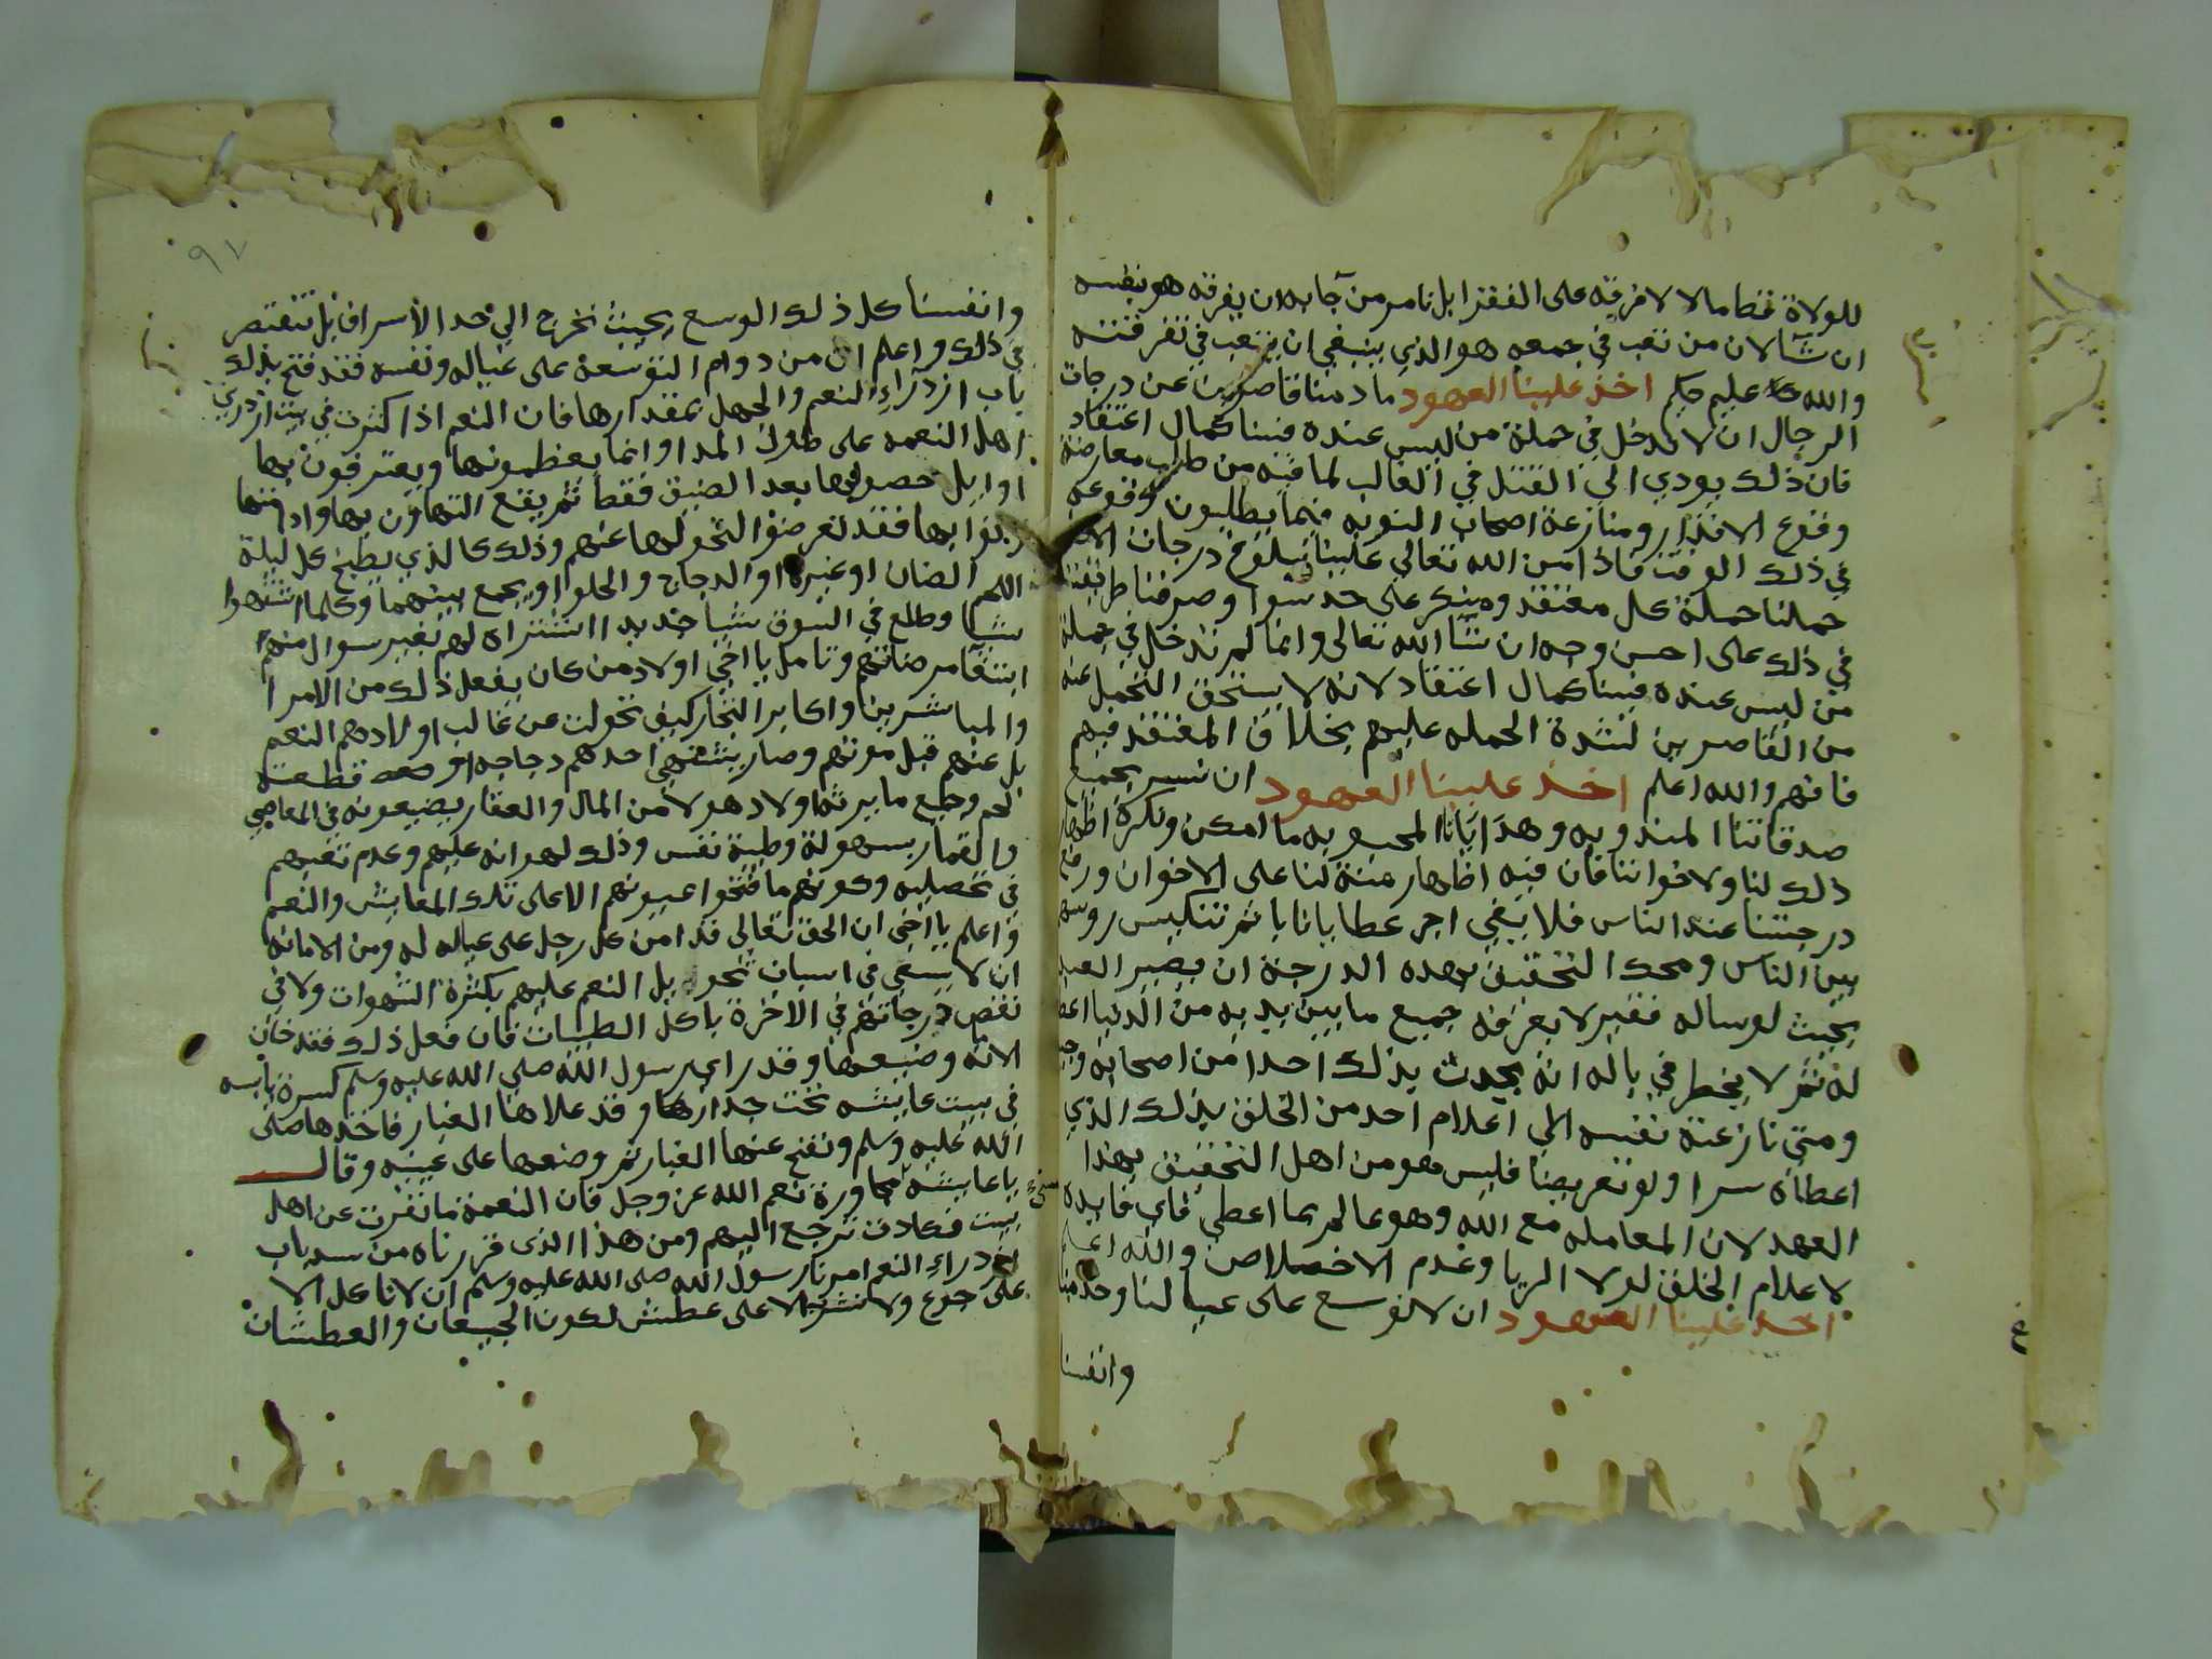 للولاة فقط مالا لانفرقه على الفقرا بل نامر من جابه ان يفرقه هو بنفسه
ان شا لان من تعب في جمعه هو الذي ينبغي ان يتعب في تفرقته
والله عليم حكيم اخذ علينا العهود ما دمنا قاصرين عن درجات
الرجال ان لا ندخل في حملة من ليس عنده فينا كمال اعتقاد
فان ذلك يودي الى القتل في الغالب لما فيه من طلب معارضة
وقوع الاقدار ومنازعة اصحاب النوبه فيما يطلبون وقوعه
في ذلك الوقت فاذا من الله تعالى علينا ببلوغ درجات
حملنا حملة كل معتقد ومنكر على حد سوا وصرفنا طريقتنا
في ذلك على احسن وجه ان شا الله تعالى وانما لم ندخل في حملة
من ليس عنده فينا كمال اعتقاد لانه لا يستحق التحمل عنه
من القاصرين لشدة الحمله عليهم بخلاف المعتقد فيهم
فافهم والله اعلم اخذ علينا العهود ان نسر بجميع
صدقاتنا المندوبه وهدايانا المحبوبه ما امكن ونكره اظهار
ذلك لنا ولاخواننا فان فيه اظهار منة لنا على الاخوان ورفع
درجتنا عند الناس فلا يفي اجر عطايانا با ثم تنكيس روسهم
بين الناس ومحك التحقيق بهذه الدرجة ان يصير العبد
بحيث لو ساله فقير لا يعرفه جميع ما بين يديه من الدنيا اعطاه
له ثم لا يخطر في باله انه يحدث بذلك احدا من اصحابه
ومتى نازعته نفسه الى اعلام احد من الخلق بذلك الذي
اعطاه سرا ولو تعريضا فليس هو من اهل التحقيق بهذا
العهد لان المعامله مع الله وهو عالم بما اعطي فاي فايدة
لاعلام الخلق لولا الريا وعدم الاخلاص والله اعلم
اخذ علينا العهود ان لا نوسع على عيالنا وخدمنا
وانفسنا
٩٧
وانفسنا كل ذلك الوسع بحيث نخرج الى حد الاسراف بل نقتصر
في ذلك واعلم ان من دوام التوسعة على عياله ونفسه فقد فتح بذلك
باب ازدراء النعم والجهل بمقدارها فان النعم اذا كثرت في بيت ازدري
اهل النعمه على طول المدا وانما يعظمونها ويعترفون بها
اوايل حصولها بعد الضيق فقط ثم يقع التهاون بها واذا
بها فقد تعرضوا لتحولها عنهم وذلك كالذي يطبخ كل ليلة
اللحم الضان او غيره او الدجاج والحلوا او يجمع بينهما وكلما اشتهوا
شيا وطلع في السوق شيا جديدا اشتراه لهم بغير سوال منهم
ابتغا مرضاتهم وتامل يا اخي اولاد من كان يفعل ذلك من الامرا
والمباشرين واكابر التجار كيف تحولت عن غالب اولادهم النعم
بل عنهم قبل موتهم وصار يشتهي احدهم دجاجه او قطعة
لحم وجميع ما يرثه اولاد هولا من المال والعقار يضيعونه في المعاصي
والقمار بسهولة وطيبة نفس وذلك لهوانه عليهم وعدم تعبهم
في تحصيله وكونهم ما فتحوا عيونهم الا على تلك المعايش والنعم
واعلم يا اخي ان الحق تعالى قد امن كل رجل على عياله له ومن الامانه
ان لا يسعى في اسباب تحويل النعم عليهم بكثرة الشهوات ولا في
نقص درجاتهم في الاخرة باكل الطيبات فان فعل ذلك فقد خان
الامانه وضيعها وقد راى رسول الله صلى الله عليه وسلم كسرة يابسه
في بيت عايشه تحت جدارها وقد علاها الغبار فاخذها صلى
الله عليه وسلم ونفخ عنها الغبار ثم وضعها على عينيه وقال
يا عايشه مجاورة نعم الله عز وجل فان النعمة ما نفرت عن اهل
بيت فكادت ترجع اليهم ومن هذا الذي قررناه من سد باب
ازدراء النعم امرنا رسول الله صلى الله عليه وسلم ان لا ناكل الا
على جوع ولا نشرب الا على عطش لكون الجيعان والعطشان